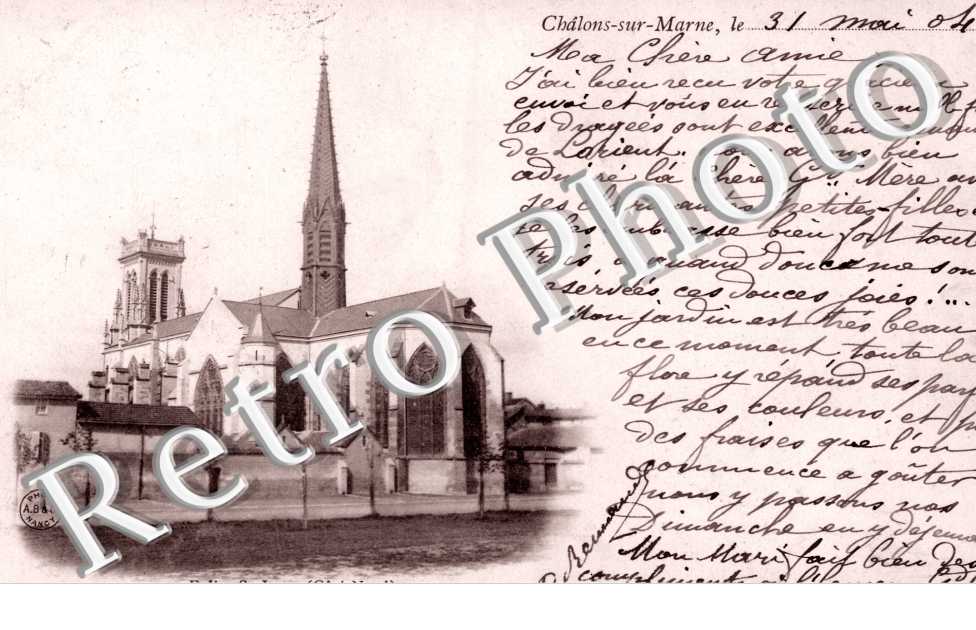 Châlons-sur-Marne, le 31 mai 04
Ma Chère amie
J'ai bien recu votre gracieux
envoi et vous en remercie mille f
les dragées sont excellentes
de Lorient.. bien
admiré là Chère Gde Mère
ses charmantes petites-filles
je les embrasse bien fort tout
trois, à quand donc me son
réservées ces douces joies!...
Mon jardin est très beau
en ce moment, toute la
flore y répand ses par
et ses couleurs, et p
des fraises que l'on
commence a goûter
nous y passons nos
Dimanche en y déjeuna
Mon Mari fait bien des
compliments
Retro Photo
Retro Photo
PH
A.B&C
NANCY